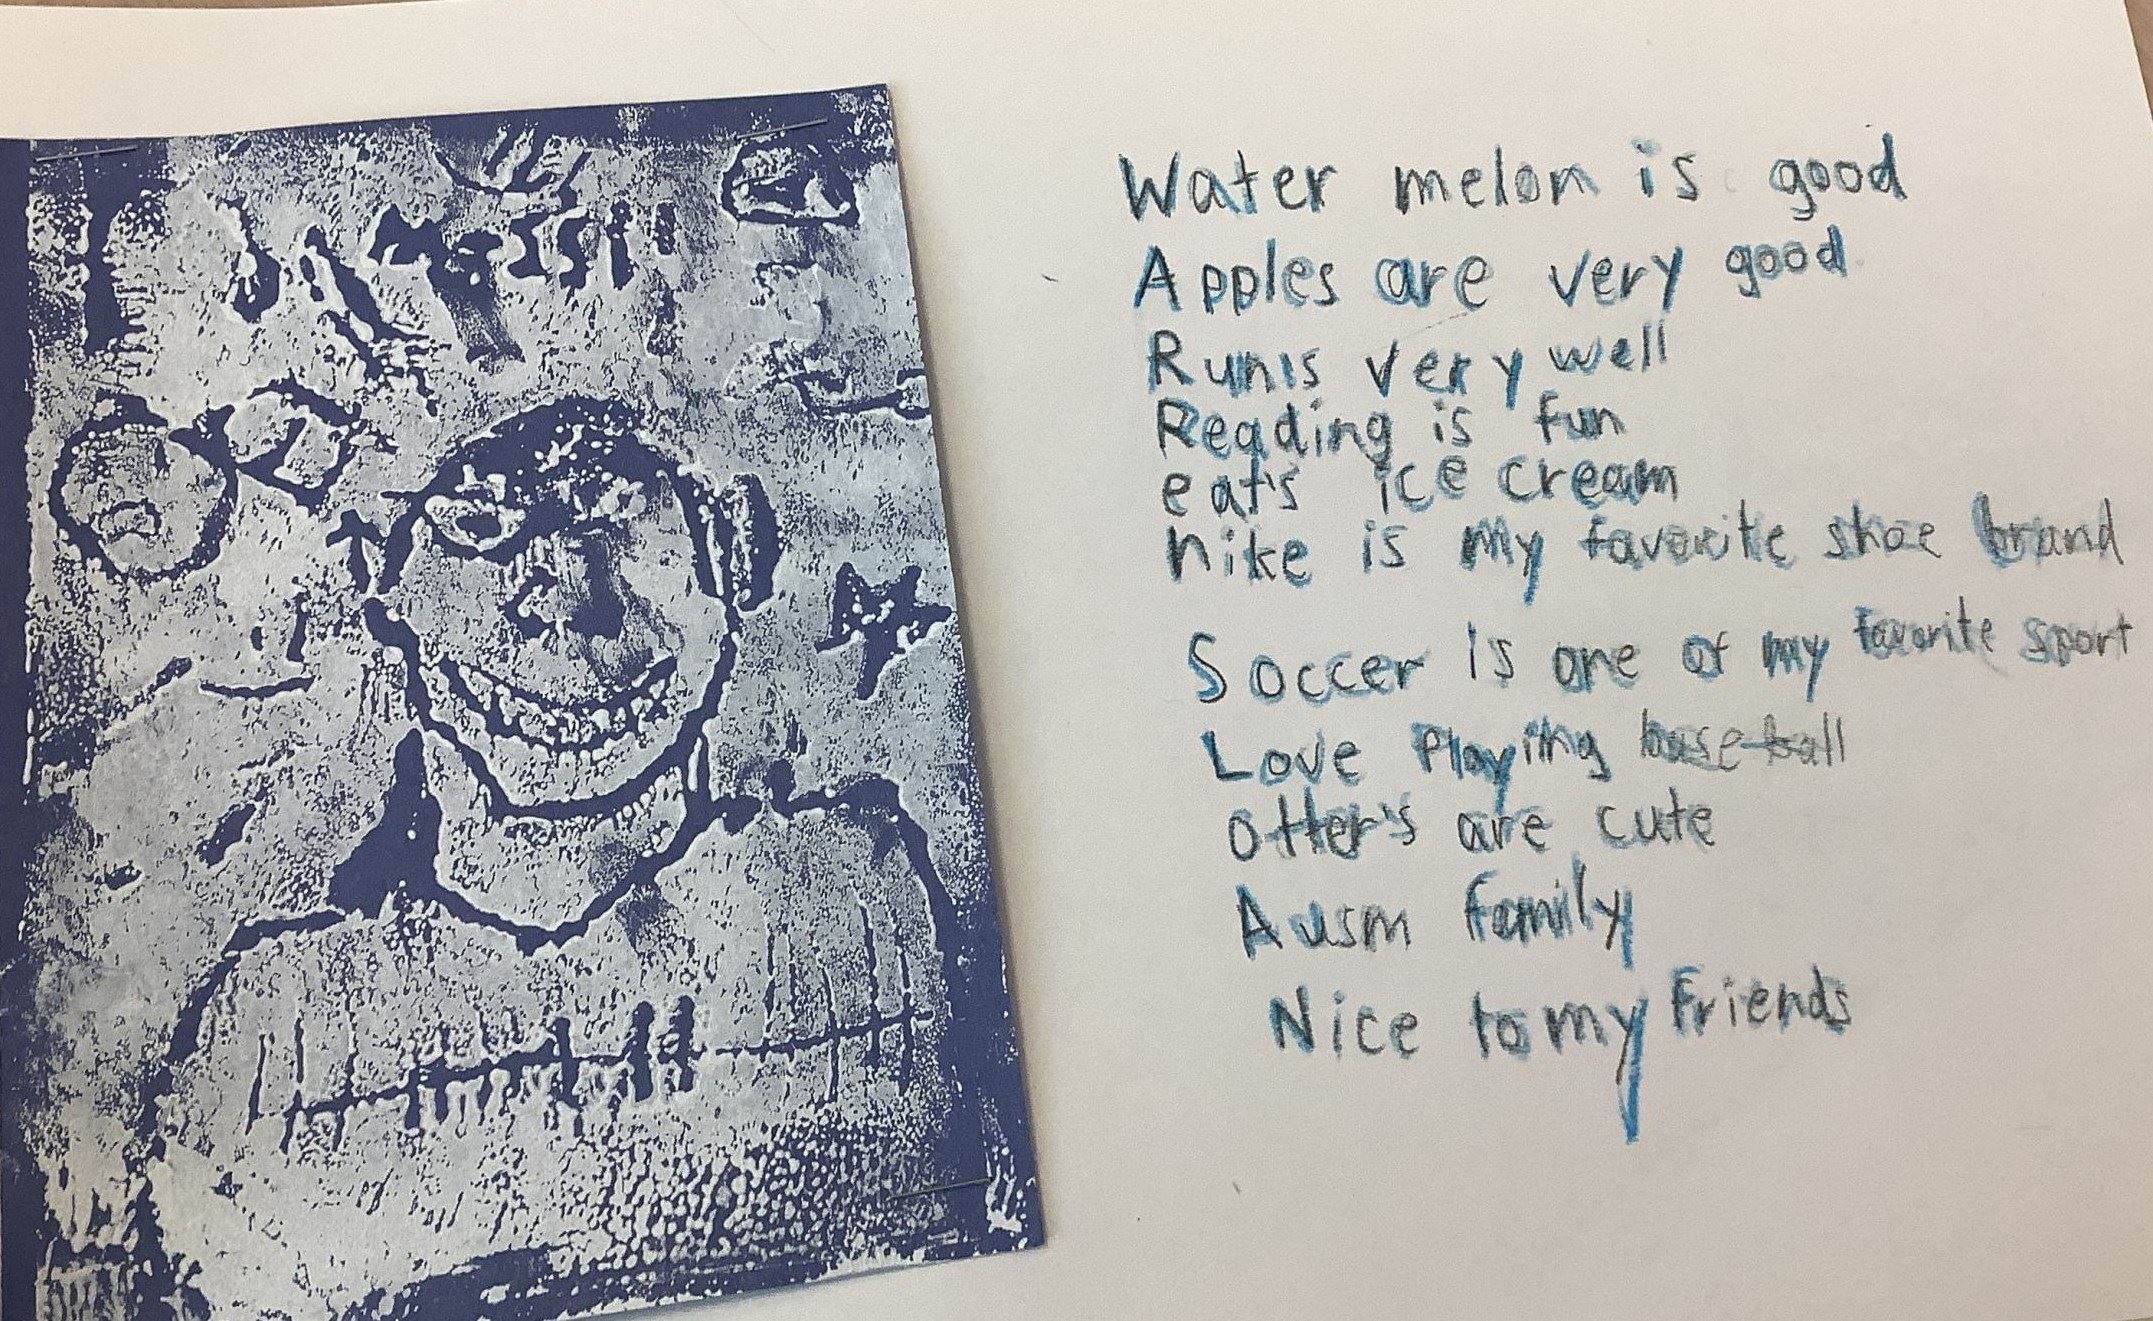 Water melon is good
Apples are very good
Runis very well
Reading is fun
eat's ice cream
nike is my favorite shoe brand
Soccer is one of my favorite sport
Love Playing base ball
Otter's are cute
Ausm family
Nice to my friends